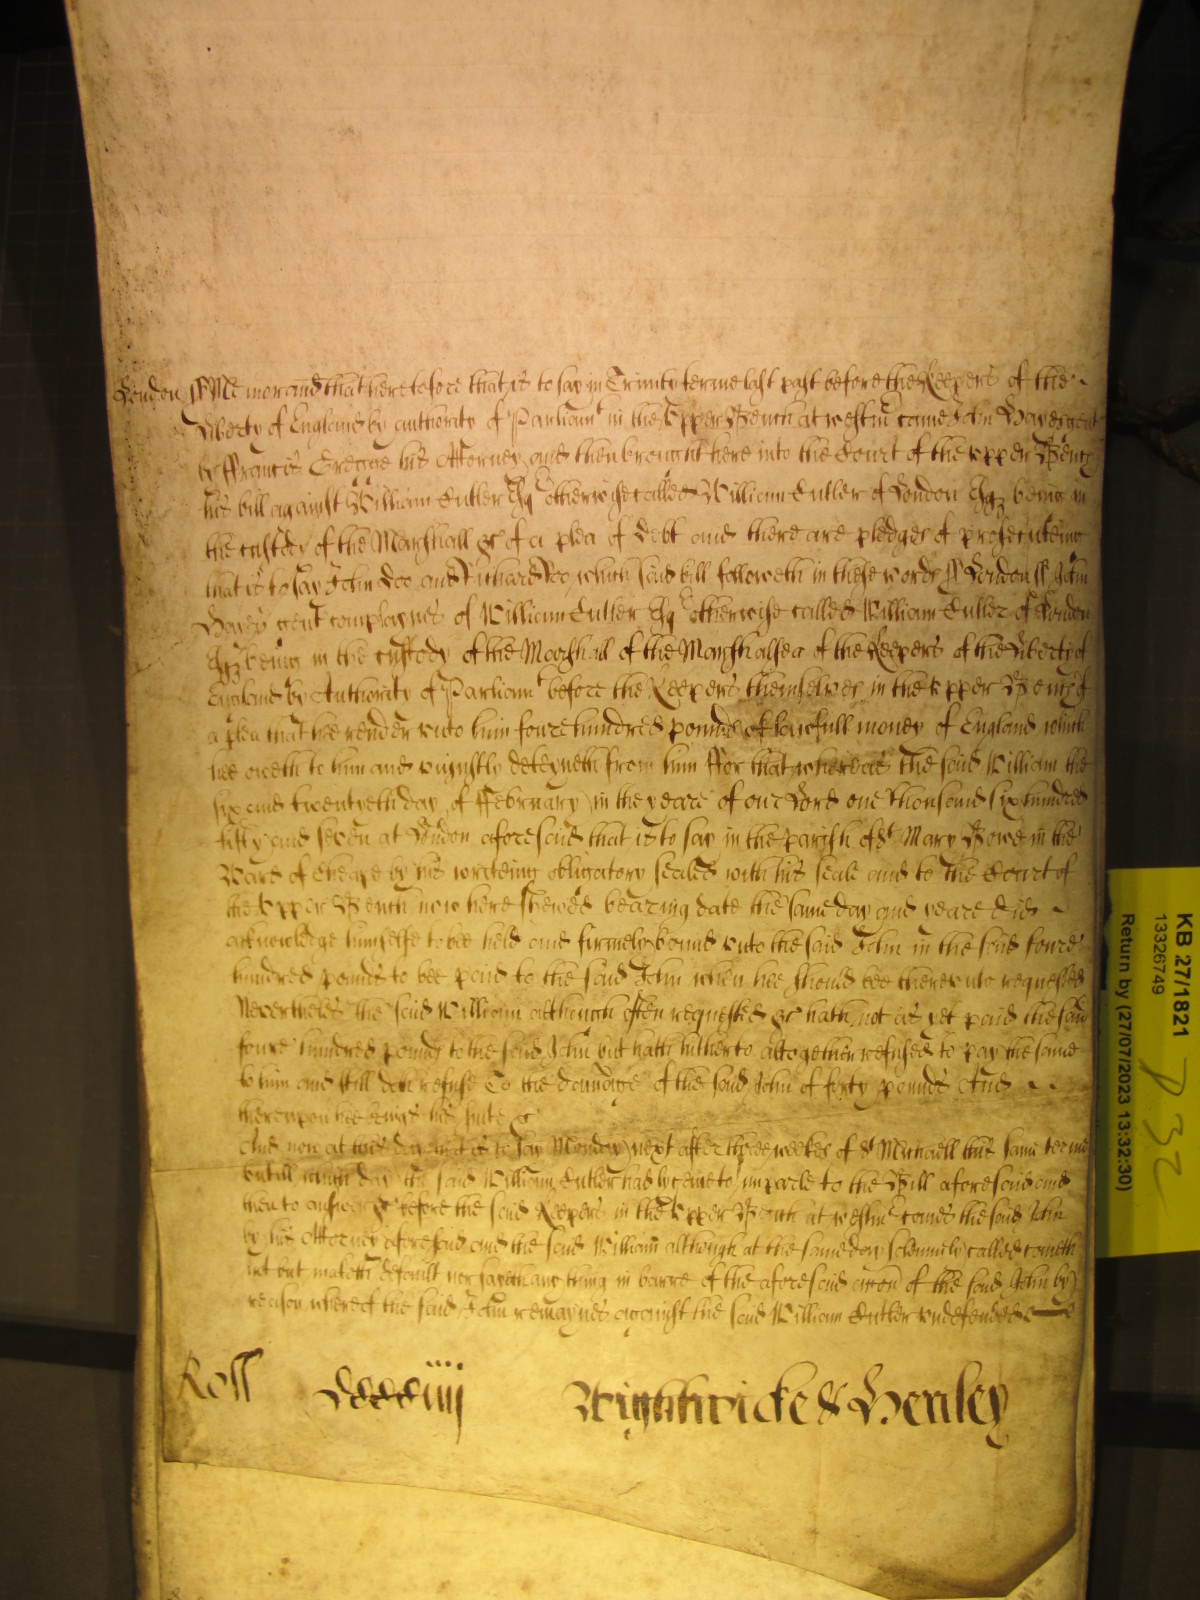 London ss Memorand that heretofore that is to say in Trinity terme last past before the Keepers of the
Liberty of England by authority of Parliamt in the Upper Bench at Westmr came John
by Ffrancis Gregge his Attorney and then brought here into the Court of the Upper Bench
his bill against William Cutler Esqr otherwise called William Cutler of London Esqr being in
the custody of the Marshall &c of a plea of debt and there are pledges of prosecuteing
that is to say John Doo and Richard Roo which said bill followeth in these words ss London ss John
gent complaynes of William Cutler Esqr otherwise called William Cutler of London
Esqr being in the custody of the Marshall of the Marshalsea of the Keepers of the Liberty of
England by Authority of Parliamt before the Keepers themselves in the Upper Bench of
a plea that hee render unto him foure hundred pounds of lawfull money of England which
hee oweth to him and uniustly deteyneth from him Ffor that whereas the said William the
six and twentyeth day of Ffebruary in the yeare of our Lord one thousand six hundred
fifty and seven at London aforesaid that is to say in the parish of St Mary Bowe in the
Ward of Cheape by his writeing obligatory sealed with his seale and to the Court of
the Upper Bench now here shewed bearing date the same day and yeare did
acknowledge himselfe to bee held and firmely bound unto the said John in the said foure
hundred pounds to bee paid to the said John when hee should bee thereunto requested
Neverthelesse the said William although often requested &c hath not as yet paid the said
foure hundred pounds to the said John but hath hitherto altogether refused to pay the same
to him and still doth refuse To the damage of the said John of forty pounds And
thereupon hee brings his suite &c
And now at this day that is to say Monday next after three weekes of St Michaell this same terme
untill which day the said William Cutler had lycence to imparle to the Bill aforesaid and
then to answer &c before the said Keepers in the Upper Bench at Westmr comes the said John
by his Attorney aforesaid and the said William although at the same day solemnely called cometh
not but maketh default nor sayeth any thing in barre of the aforesaid accon of the said John by
reason whereof the said John remaynes against the said William Cutler undefended
Roll CCCCiiij Rightwicke & Henley
KB 27/1821
13326749
Return by (27/07/2023 13:32:30)
P 32